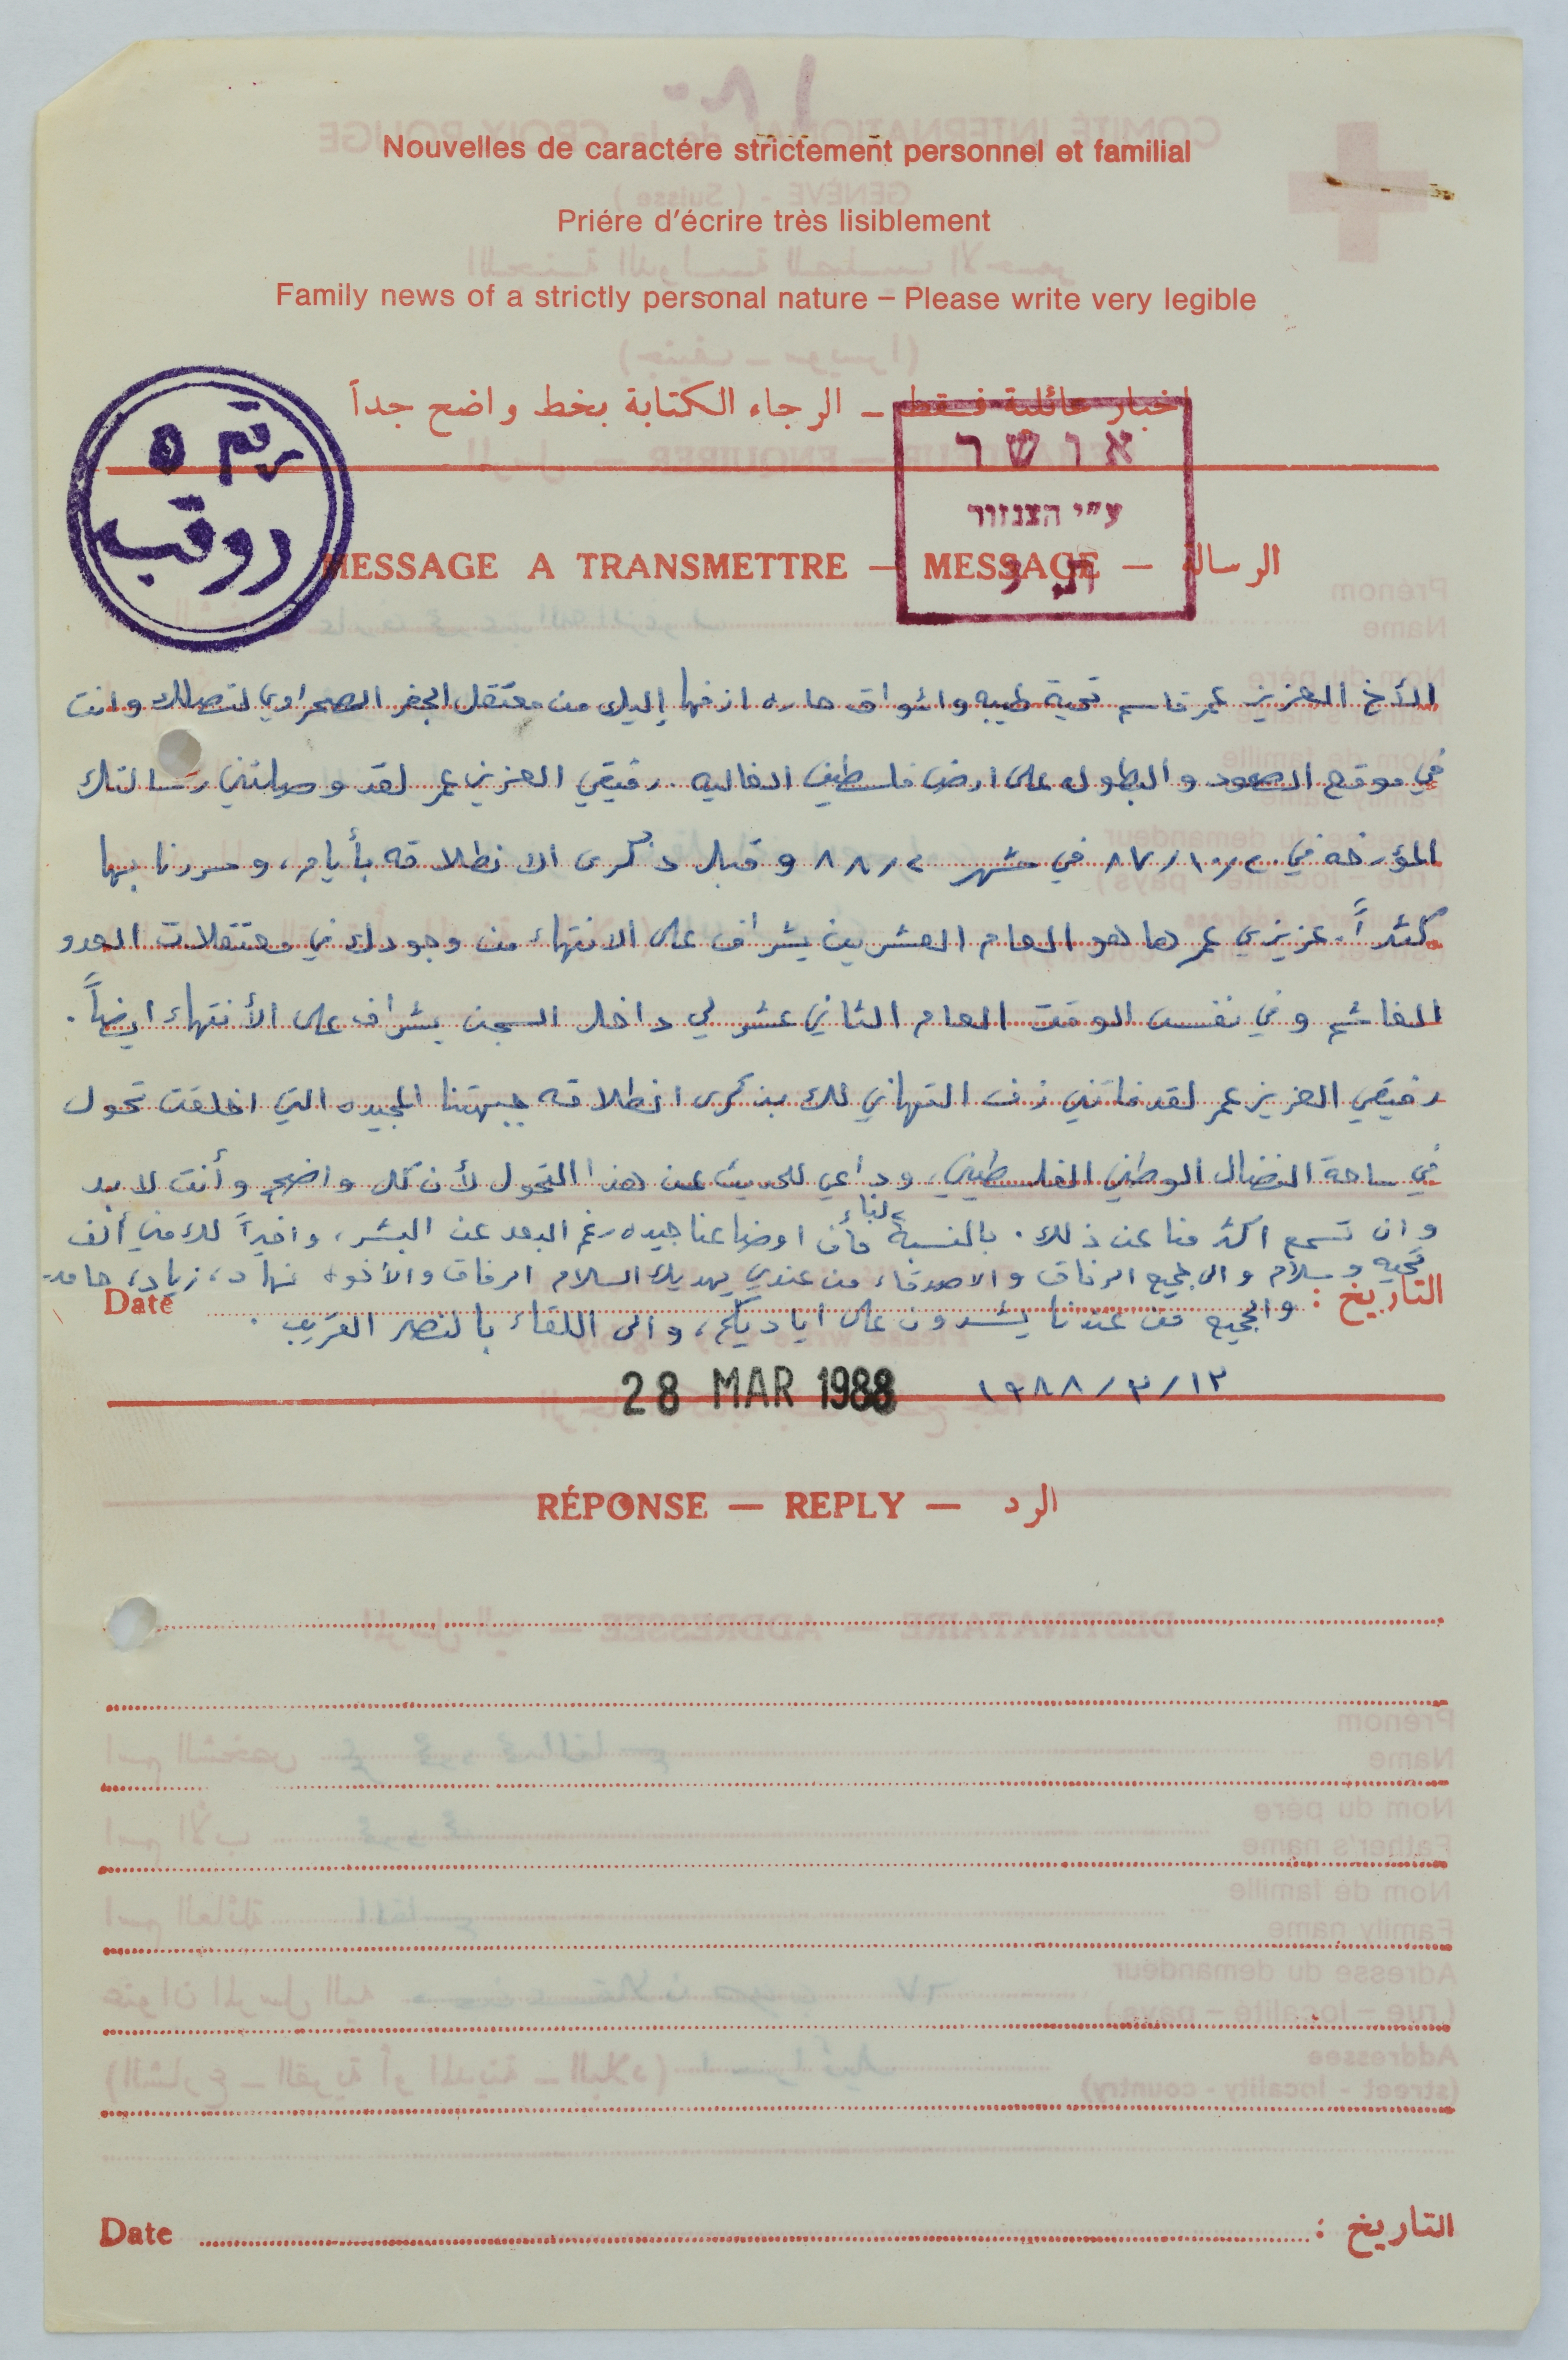 Nouvelles de caractére strictement personnel et familial
Priére d'écrire très lisiblement
Family news of a strictly personal nature – Please write very legible
اخبار عائلية فقط – الرجاء الكتابة بخط واضح جداً
رقم ٥
دوقب
אושר
ע"י הצנזור
MESSAGE A TRANSMETTRE — MESSAGE — الرسالة
الأخ العزيز عمر قاسم تحية طيبه واشواق حاره ازفها إليك من معتقل الجفر الصحراوي لتصلك وانت
في موقع الصمود والبطوله على ارض فلسطين الغاليه. رفيقي العزيز عمر لقد وصلتني رسالتك
المؤرخه في ٨٧/١٠/٢٠ في شهر ٨٨/٢ وقبل ذكرى الانطلاقه بأيام، وسررنا بها
كثيراً. عزيزي عمر ها هو العام العشرين يشراف على الانتهاء من وجودك في معتقلات العدو
الغاشم وفي نفس الوقت العام الثاني عشر لي داخل السجن يشراف على الأنتهاء ايضاً.
رفيقي العزيز عمر لقد فاتني زف التهاني لك بذكرى انطلاقه جبهتنا المجيده التي اخلقت تحول
في ساحة النضال الوطني الفلسطيني، وداعي للحديث عن هذا التحول لأن كل واضح وأنت لا بد
وان تسمع اكثر منا عن ذلك. بالنسبة لنا فأن اوضاعنا جيده رغم البعد عن البشر، واخيراً لك مني ألف
تحيه وسلام والى جميع الرفاق والاصدقاء من عندي يهديك السلام الرفاق والأخوه نهاد، زياد، حامد
والجميع من عندنا يشدون على اياديكم، والى اللقاء بالنصر القريب.
Date التاريخ :
28 MAR 1988 ١٩٨٨/٣/١٢
RÉPONSE — REPLY — الرد
Date التاريخ :